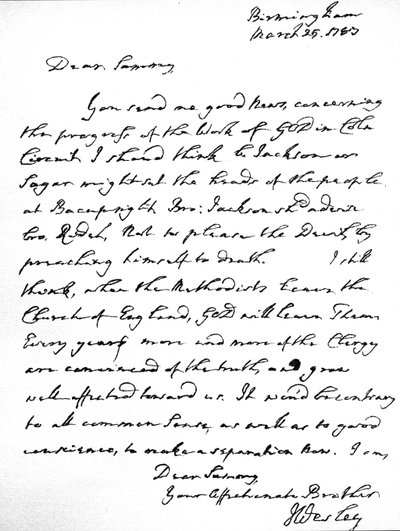 Birmingham
March 25, 1783
Dear Sammy,
You send me good News, concerning
the progress of the Work of GOD in Coln
Circuit. I should think Br Jackson or
Sagar might set the heads of the people
at Bacup right. Bro: Jackson shd advise
bro. Not to please the Devil, by
preaching himself to death. I still
think, when the Methodists leave the
Church of England, GOD will leave Them.
Every year more and more of the Clergy
are convinced of the truth, and grow
well-affected toward us. It would be contrary
to all common Sense, as well as to good
conscience, to make a separation Now. I am,
Dear Sammy,
Your Affectionate Brother
JWesley